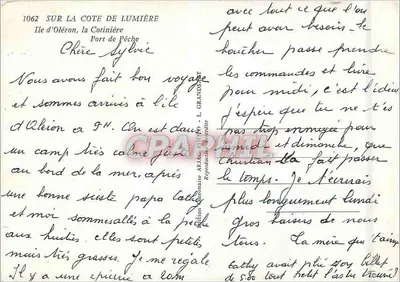 1062 SUR LA COTE DE LUMIÈRE
Ile d'Oléron, la Cotinière
Port de Pêche
Chère Sylvie
Nous avons fait bon voyage
et sommes arrivés à l'île
d'Oléron a 9H. On est dans
un camp très calme juste
au bord de la mer. après
une bonne sieste papa Cathy
et moi sommes allés à la pêche
aux huitres. elles sont petites
mais très grasses. Je me régale
Il y a une épicerie a 20m
L. GRANDSIRE
Reproduction interdite
CPARAMA.COM
avec tout ce que l'on
peut avoir besoin. le
boucher passe prendre
les commandes et livre
pour midi, c'est l'idéal
j'espère que tu ne t'es
pas trop ennuyée pour
samedi et dimanche, que
Christian t'a fait passer
le temps. Je t'écrirais
plus longuement lundi
gros baisers de nous
tous. La mère qui t'aime
Cathy avait plus son billet
de 500 tout petit l'as tu trouvé?